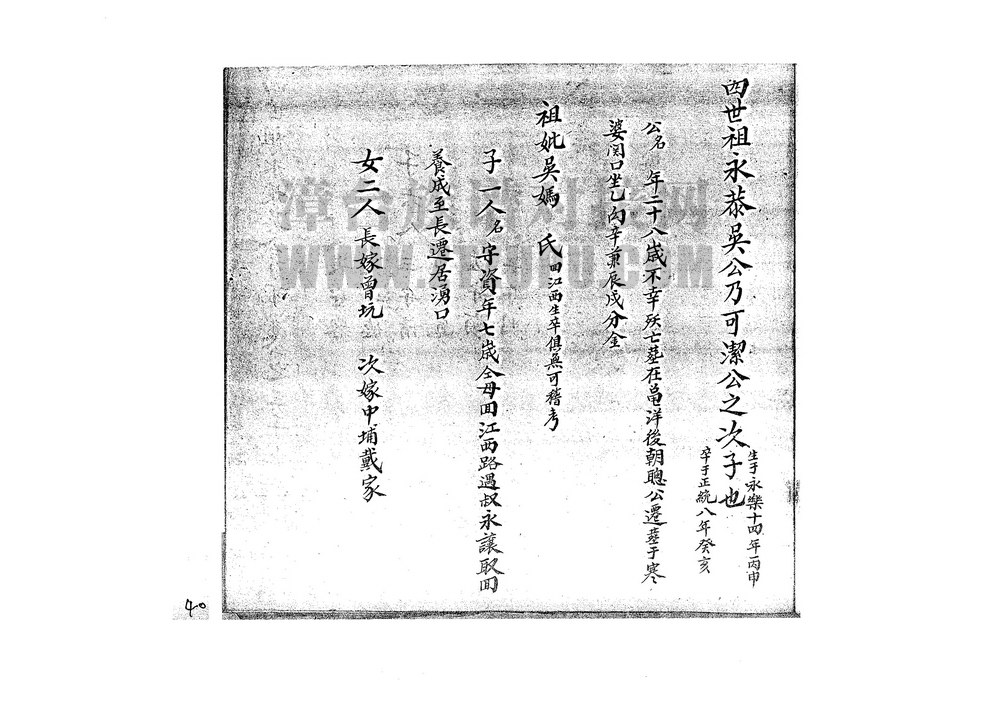 四世祖永恭吳公乃可潔公之次子也
生于永樂十四年丙申
卒于正統八年癸亥
公名 年二十八歲不幸殀亡葬在畐洋後朝聰公遷葬于寒
婆閃口坐乙向辛兼辰戍分金
祖妣吳媽 氏回江西生卒俱無可稽考
子一人名守資年七歲仝母回江西路遇叔永讓取回
養成至長遷居湧口
女二人 長嫁曾坑 次嫁中埔戴家
漳台族譜对接网
40